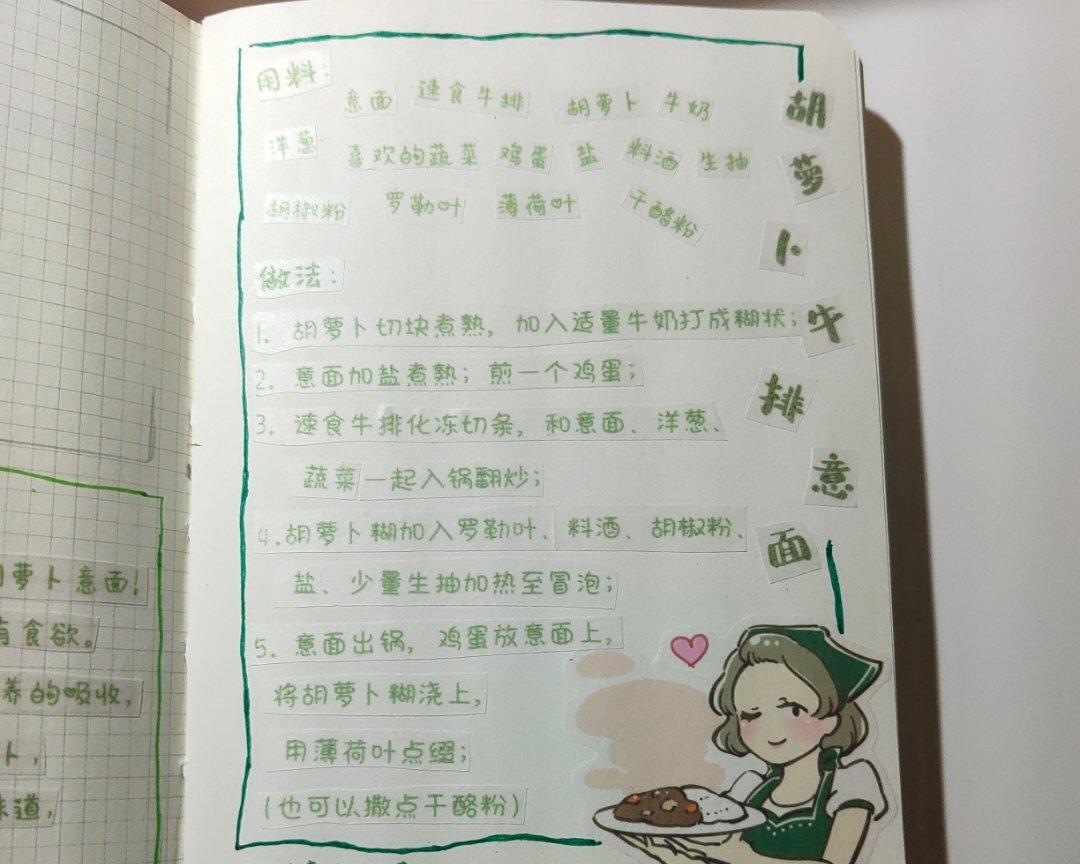 胡萝卜牛排意面
用料：
意面 速食牛排 胡萝卜 牛奶
洋葱 喜欢的蔬菜 鸡蛋 盐 料酒 生抽
胡椒粉 罗勒叶 薄荷叶 干酪粉
做法：
1. 胡萝卜切块煮熟，加入适量牛奶打成糊状；
2. 意面加盐煮熟；煎一个鸡蛋；
3. 速食牛排化冻切条，和意面、洋葱、
蔬菜一起入锅翻炒；
4.胡萝卜糊加入罗勒叶、料酒、胡椒粉、
盐、少量生抽加热至冒泡；
5. 意面出锅，鸡蛋放意面上，
将胡萝卜糊浇上，
用薄荷叶点缀；
（也可以撒点干酪粉）
萝卜意面！
食欲。
养的吸收，
卜，
味道，